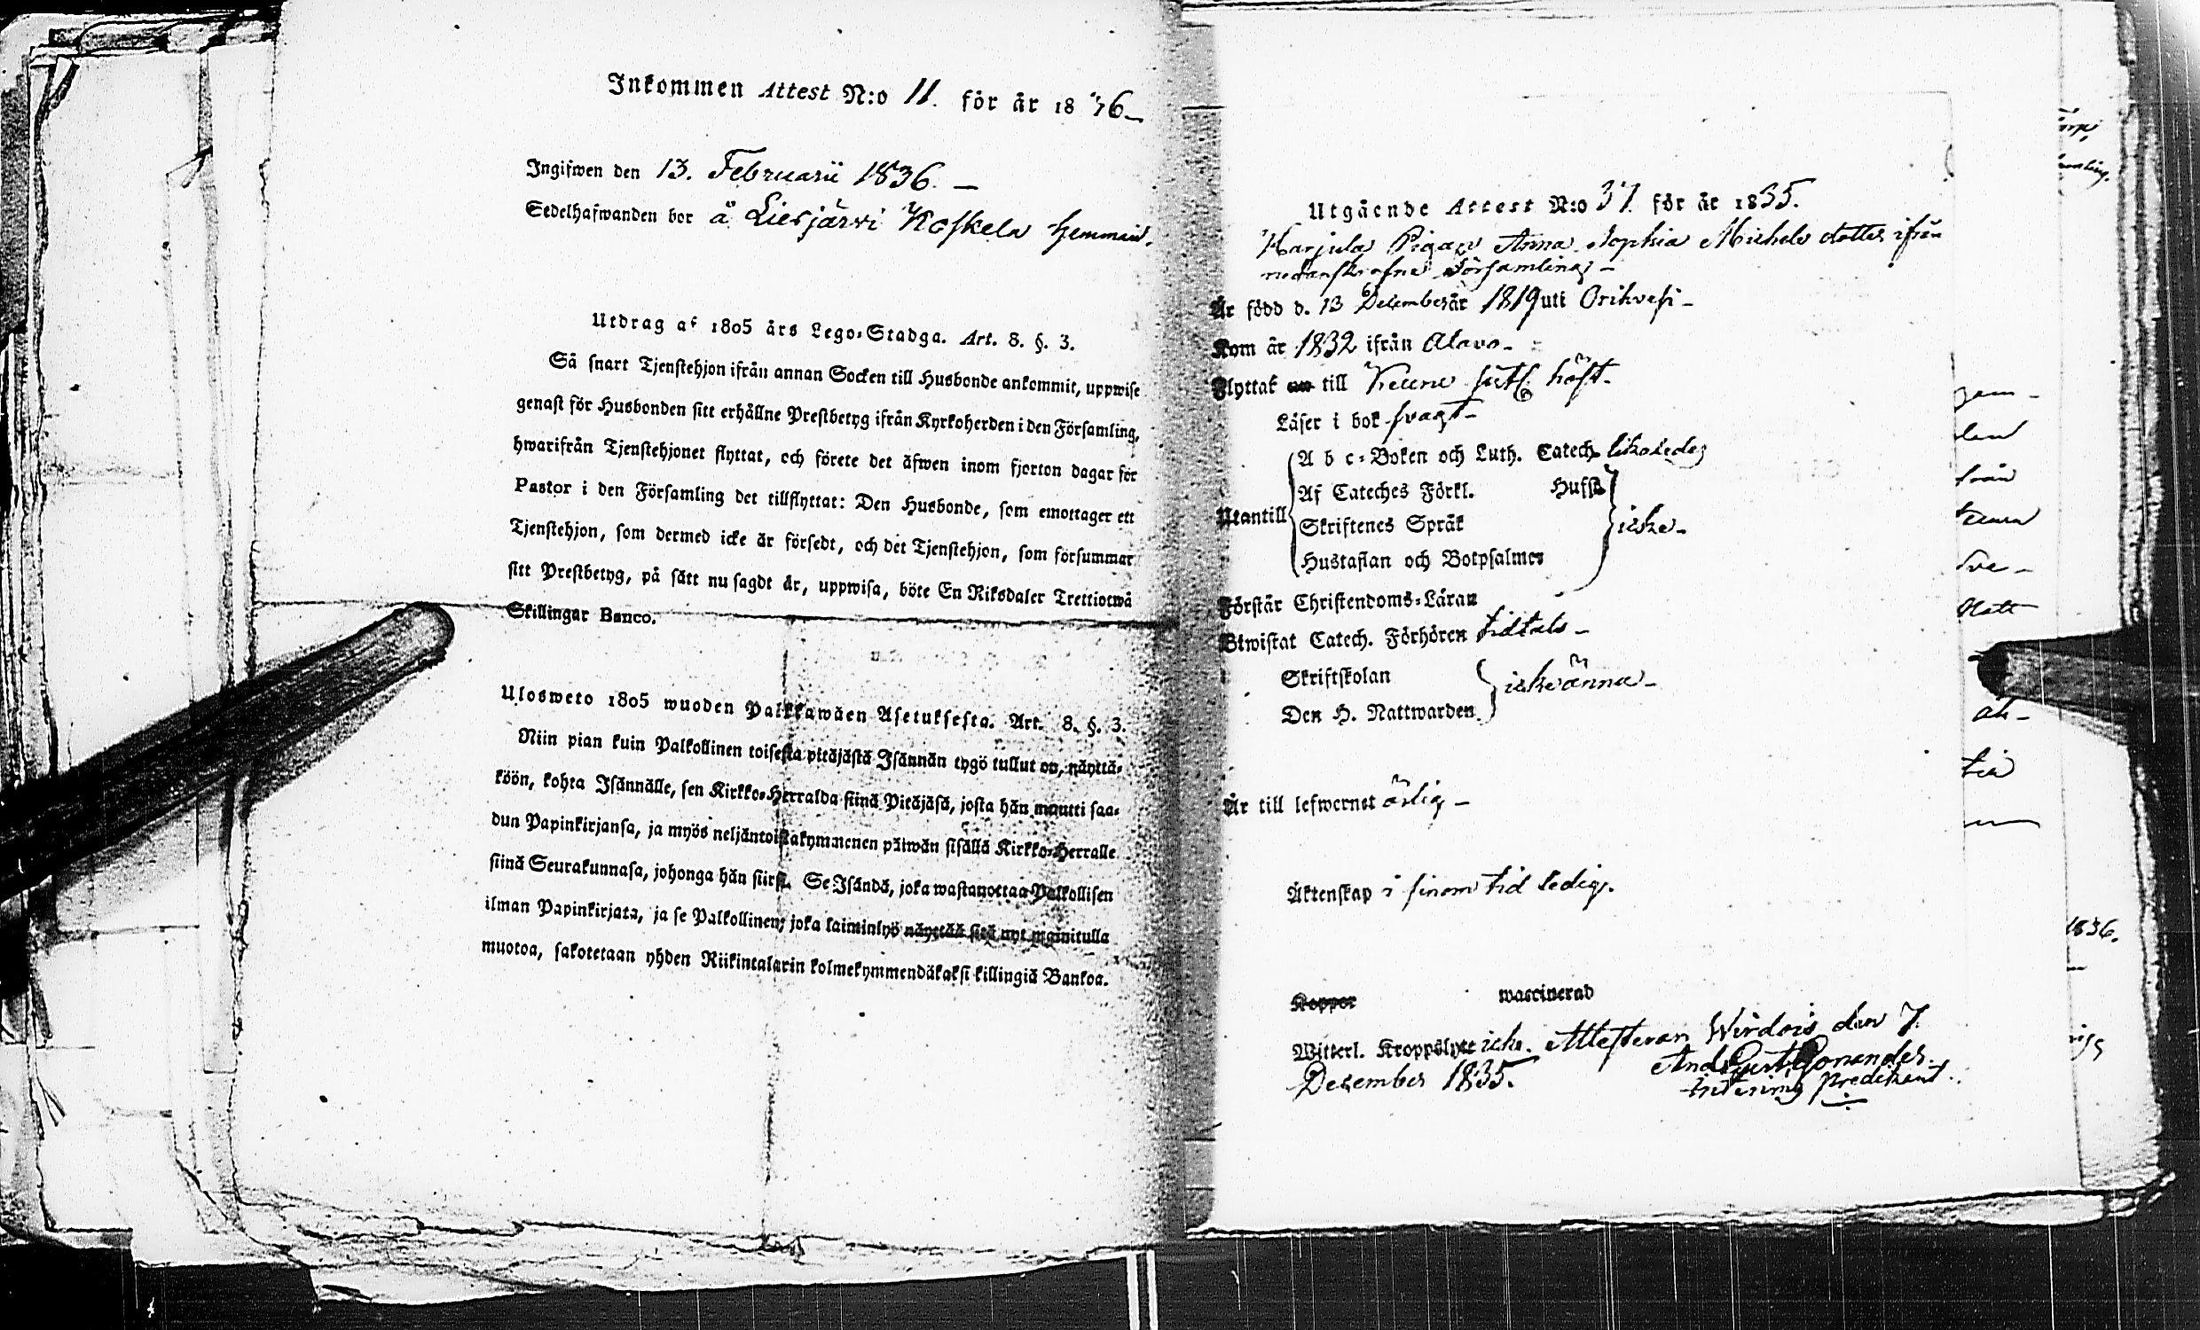 Inkommen Attest N:o 11. för år 1836
Ingifwen den 13. Februarii 1836.
Sedelhafwanden bor å Liesjärvi Koskela hemman.
Utdrag af 1805 års Lego-Stadga. Art. 8. §. 3.
Så snart Tjenstehjon ifrån annan Socken till Husbonde ankommit, uppwise
genast för Husbonden sitt erhållne Prestbetyg ifrån Kyrkoherden i den Församling,
hwarifrån Tjenstehjonet flyttat, och förete det äfwen inom fjorton dagar för
Pastor i den Församling det tillflyttat: Den Husbonde, som emottager ett
Tjenstehjon, som dermed icke är försedt, och det Tjenstehjon, som försummar
sitt Prestbetyg, på sätt nu sagdt är, uppwisa, böte En Riksdaler Trettiotwå
Skillingar Banco.
Ulosweto 1805 wuoden Palkkawäen Asetuksesta. Art. 8. §. 3.
Niin pian kuin Palkollinen toisesta pitäjästä Isännän tygö tullut on, näyttä-
köön, kohta Isännälle, sen Kirkko-Herralda siinä Pitäjäsä, josta hän muutti saa-
dun Papinkirjansa, ja myös neljäntoistakymmenen päiwän sisällä Kirkko-Herralle
siinä Seurakunnasa, johonga hän siirsi. Se Isändä, joka wastanottaa Palkollisen
ilman Papinkirjata, ja se Palkollinen, joka laiminlyö näyttää sitä nyt mainitulla
muotoa, sakotetaan yhden Riikintalarin kolmekymmendäkaksi killingiä Bankoa.
Utgående Attest N:o 37. för år 1835.
Harjula Pigan Anna Sophia Michels dotter ifrån
nedanskrefne Församling
Är född d. 13 December år 1819 uti Orihvesi
Kom år 1832 ifrån Alavo
Flyttat till Keuru
Läser i bok svagt
A b c-Boken och Luth. Catech. likaledes
Af Cateches Förkl. Hufst.
Utantill Skriftenes Språk icke
Hustaflan och Botpsalmer
Förstår Christendoms-Läran
Biwistat Catech. Förhören tidtals
Skriftskolan
icke änna
Den H. Nattwarden
Är till lefwernet ärlig
Äktenskap i sinom tid ledig.
Koppor waccinerad
Witterl. Kroppslyte icke. Attesterar Wirdois den 7
December 1835. And Gust Gonander.
Interims Predikant.
1836.